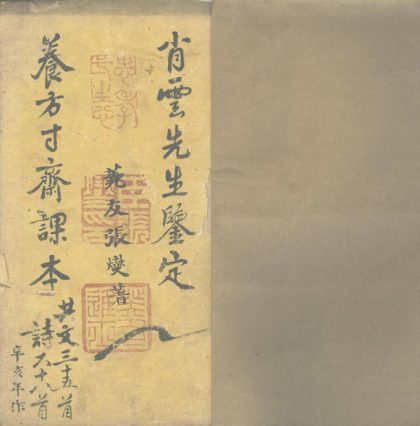 肖雲先生鑒定
友張燮著
養方寸齋課本
共文三十五首
詩六十八首
辛亥年作